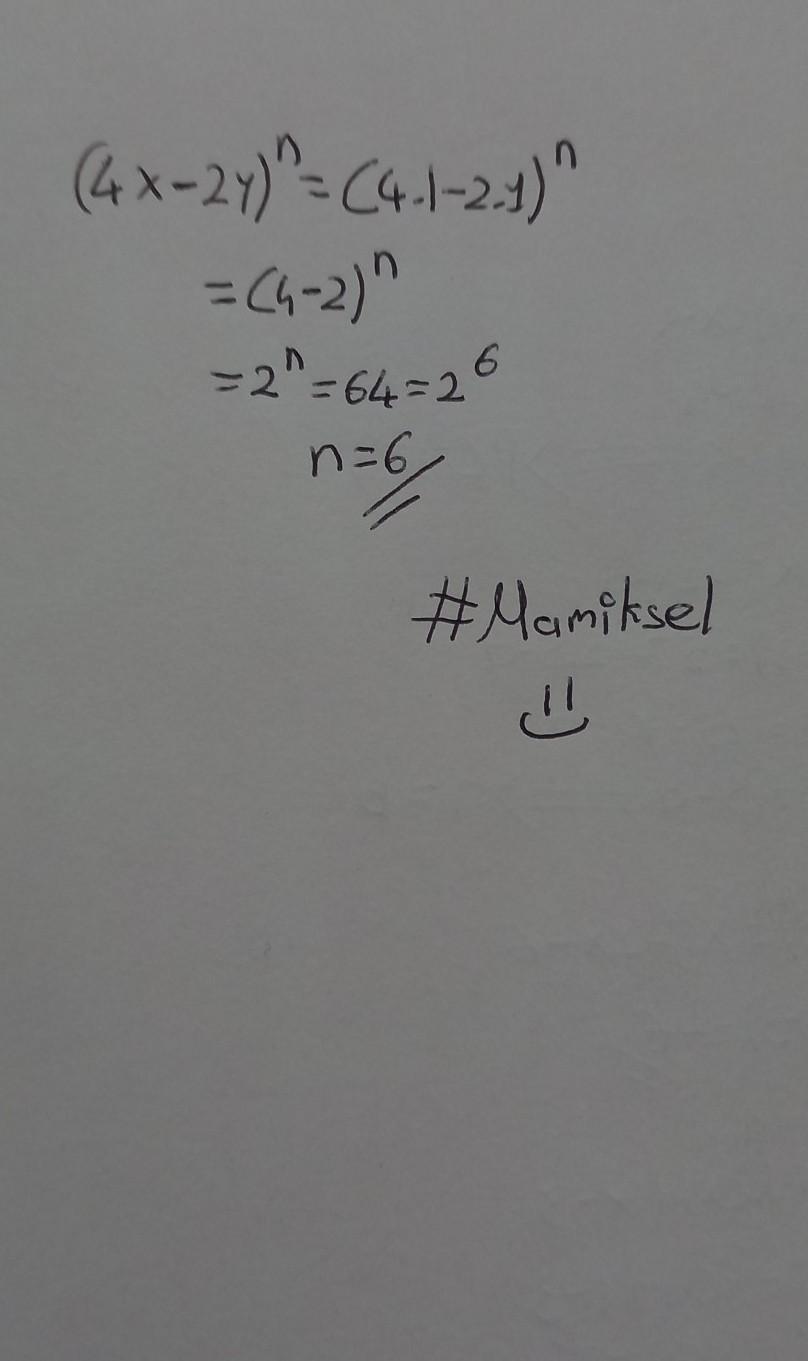 (4x-2y)ⁿ=(4.1-2.1)ⁿ
=(4-2)ⁿ
=2ⁿ=64=2⁶
n=6
#Mamiksel